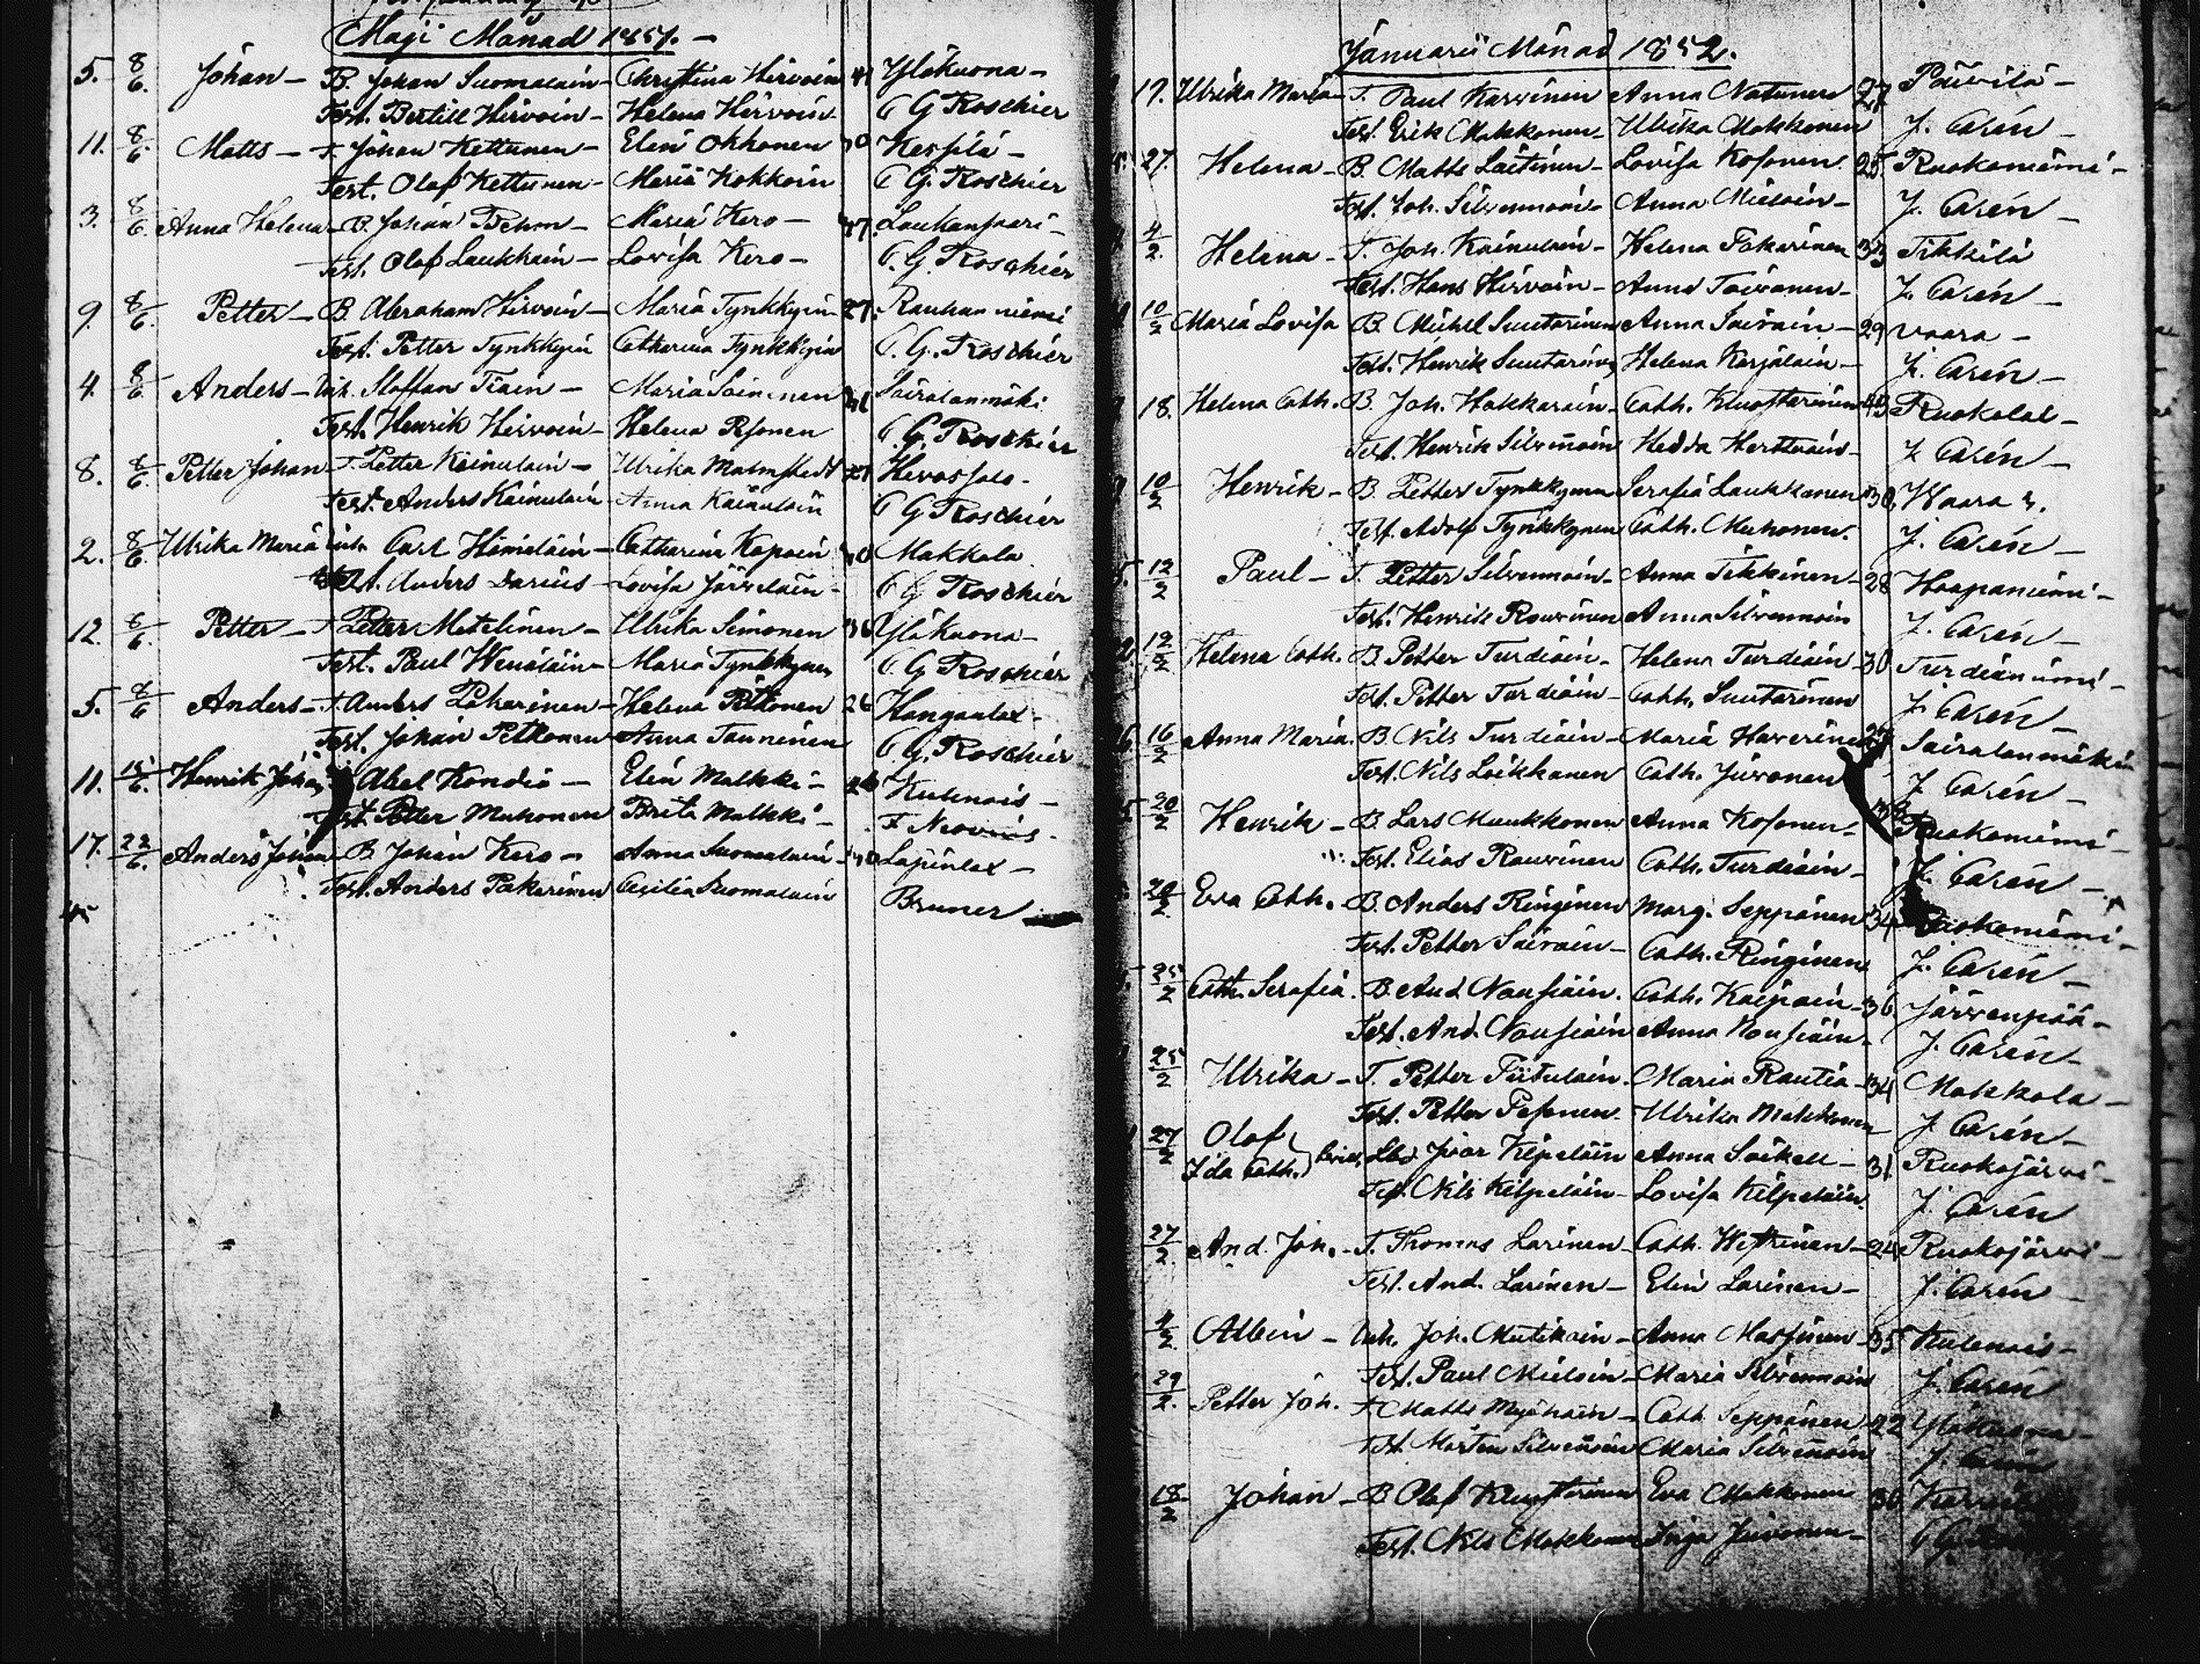 Maji Månad 1851. —
5. 8/6. Johan — B. Johan Suomalain — Christina Hirvoin 41 Yläkuona —
Test. Bertill Hirvoin — Helena Hirvoin C G Roschier
11. 8/6. Matts — T. Johan Kettunen — Elin Okkonen 30 Kesjilä —
Test. Olof Kettunen — Maria Kokkoin C G. Roschier
3. 8/6. Anna Helena — B. Johan — Maria Kero — 47. Laukansaari —
Test. Olof Laukkain — Lovisa Kero — C. G. Roschier
9. 8/6. Petter — B. Abraham Hirvoin — Maria Tynkkyin 27. Rauhanniemi
Test. Petter Tynkkyin Catharina Tynkkyin C. G. Roschier
4. 8/6. Anders — Inh. Staffan Tiain — Maria Soininen Sairalanmäki
Test. Henrik Hirvoin — Helena Pesonen C. G. Roschier
8. 8/6. Petter Johan — T. Petter Kainulain — Ulrika Malmstedt 27 Hevossalo —
Test. Anders Kainulain — Anna Kainulain C G Roschier
2. 8/6. Ulrika Maria Inh. Carl Himilain — Catharina Kapain 40 Makkola
Test. Anders Darius — Lovisa Järvelain — C G Roschier
12. 8/6. Petter — T Petter Matelinen — Ulrika Simonen 36 Yläkuona —
Test. Paul Wenäläin — Maria Tynkkynen C. G Roschier
5. 8/6 Anders — T. Anders Pakarinen — Helena Pitkonen 26 Hangaslax —
Test. Johan Petkonen — Anna Tanninen C. G. Roschier
11. 15/6. Henrik Johan Abel Kondia — Elin Malkki — 26 Kulenois —
Test Petter Muhonen Brita Malkki — F Neovius —
17. 22/6. Anders Johan — B. Johan Kero — Anna Suomalain — 40 Lapinlax —
Test. Anders Pakarinen Cecilia Suomalain Bruner
45
Januarii Månad 1852.
17. Ulrika Maria — T. Paul Karvinen Anna Natunen 27 Päivilä —
Test. Erik Makkonen — Ulrika Makkonen J. Carén —
27. Helena — B. Matts Laitinen — Lovisa Kosonen 25. Ruokoniemi —
Test. Joh. Silvennoin — Anna Mieloin — J. Carén —
4/2. Helena — T. Joh. Kainulain — Helena Pakarinen 33 Tikkilä
Test. Hans Hirvoin — Anna Toivanen — J. Carén —
10/2 Maria Lovisa B. Michel Suutarinen Anna Sairain — 29 Vaara —
Test. Henrik Suutarinen Helena Karjalain — J. Carén —
18. Helena Cath. B. Joh. Hakkarain — Cath. Kluostarinen 45 Ruokolax —
Test. Henrik Silvennoin Hedda Herttuain — J. Carén —
10/2 Henrik — B. Petter Tynkkynen Serafia Laukkanen 30. Waara
Test. Adolf Tynkkynen Cath. Muhonen. J. Carén —
12/2 Paul — T. Petter Silvennoin — Anna Tikkinen — 28 Haapaniemi —
Test. Henrik Rouvinen Anna Silvennoin J. Carén —
12/2 Helena Cath. B. Petter Turdiain — Helena Turdiain — 30 Turdianiemi —
Test. Petter Turdiain — Cath. Suutarinen J. Carén —
16/2 Anna Maria. B. Nils Turdiain — Maria Haverinen Sairalanmäki
Test. Nils Loikkanen Cath. Juvonen J. Carén —
20/2 Henrik — B. Lars Muukkonen Anna Kosonen — 38 Ruokoniemi —
Test. Elias Rouvinen Cath. Turdiain — J. Carén —
20/2 Eva Cath. — B. Anders Ringinen Marg. Seppänen 34 Ruokoniemi —
Test. Petter Sairain — Cath. Ringinen J. Carén —
25/2 Cath. Serafia. B. And Nousiain. Cath. Kaipain — 36. Järvenpää —
Test. And. Nousiain Anna Nousiain — J. Carén —
25/2 Ulrika — T. Petter Tiitulain. Maria Rautia — 34 Makkola —
Test. Petter Pesonen. Ulrika Makkonen J. Carén —
27/2 Olof, Ida Cath. Ivar Kilpeläin Anna Saikell — 31 Ruokojärvi —
Test. Nils Kilpeläin — Lovisa Kilpeläin. J. Carén
27/2. And. Joh. — T. Thomas Larinen — Cath. Westrinen — 24 Ruokojärvi —
Test. And. Larinen — Elin Larinen — J. Carén —
4/2 Albin — Inh. Joh. Mutikain — Anna Marjinen — 35 Kulenois —
Test. Paul Mieloin — Maria Silvennoin J. Carén
29/2. Petter Joh. T. Matts Myöhäin — Cath Seppänen — 22 Yläkuona —
Test. Mårten Silvennoin Maria Silvennoin J. Carén
18/2 Johan — B. Olof Kluostarinen Eva Makkonen 30
Test. Nils Makkonen Inga Juvonen — C G